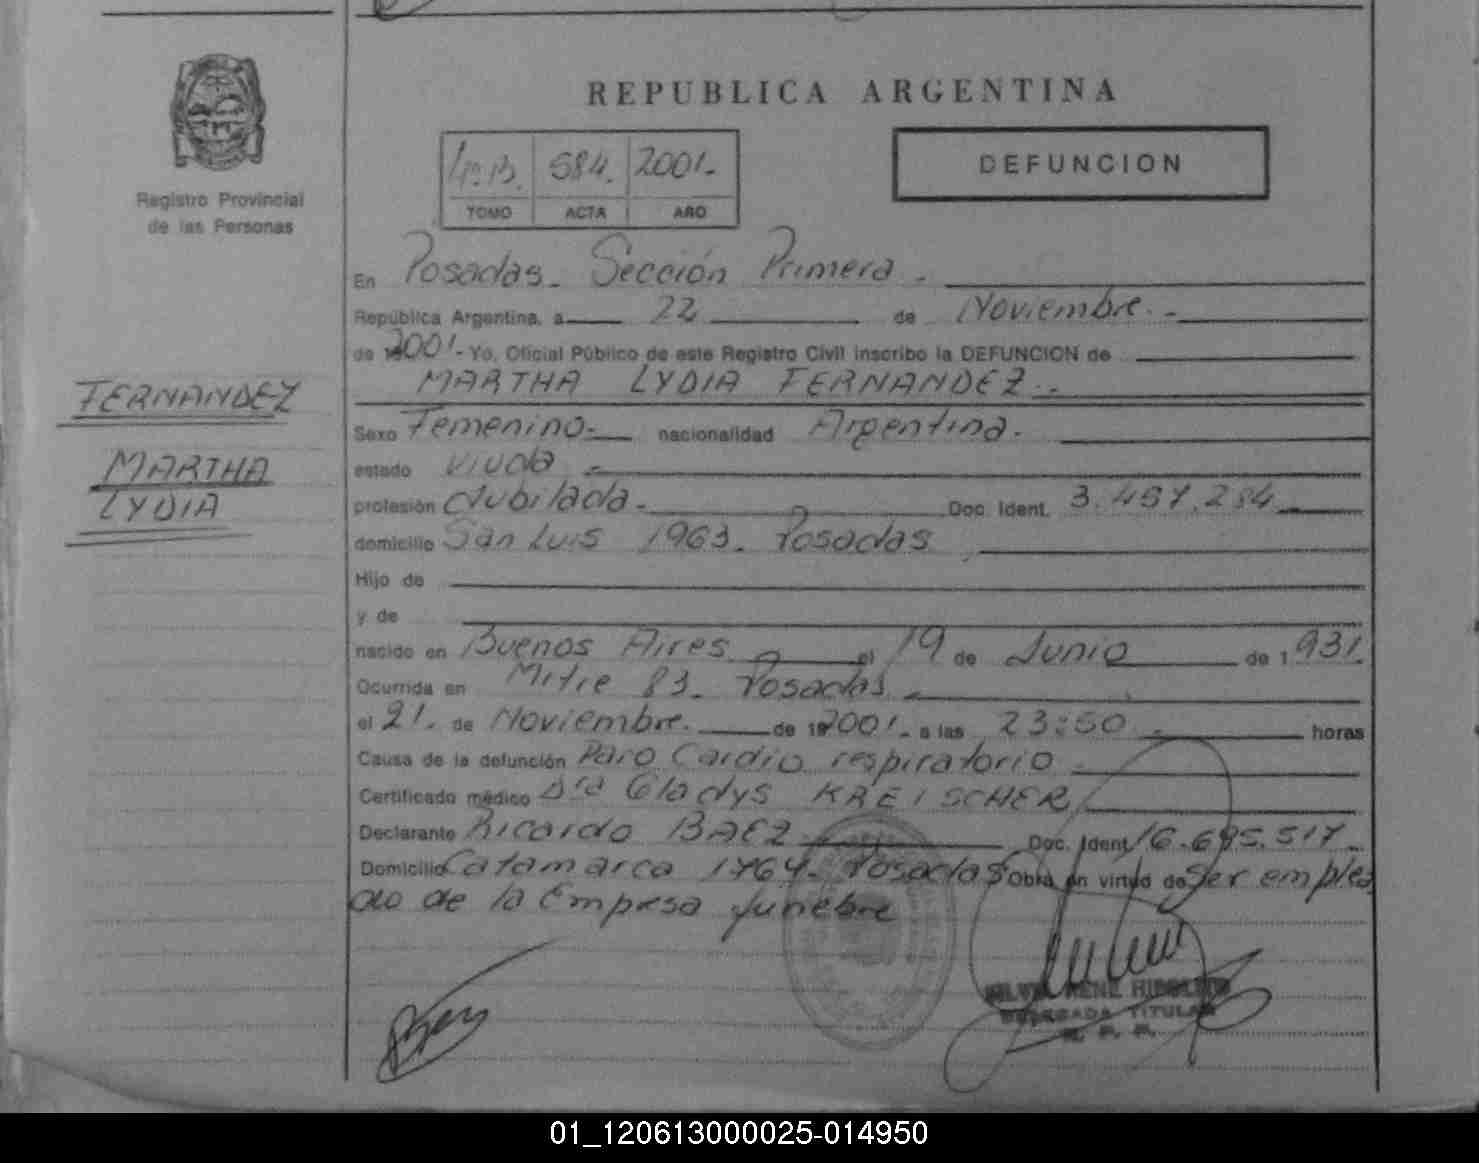 REPUBLICA ARGENTINA
Registro Provincial
de las Personas
4º B. 584. 2001.-
TOMO ACTA AÑO
DEFUNCION
En Posadas. Sección Primera.-
República Argentina, a 22 de Noviembre.-
de 2001.- Yo, Oficial Público de este Registro Civil inscribo la DEFUNCION de
MARTHA LYDIA FERNANDEZ.-
FERNANDEZ
MARTHA
LYDIA
Sexo Femenino.- nacionalidad Argentina.
estado viuda.-
profesión Jubilada.- Doc. Ident. 3.457.284
domicilio San Luis 1963. Posadas
Hijo de
y de
nacido en Buenos Aires el 19 de Junio de 1931.
Ocurrida en Mitre 83. Posadas.
el 21. de Noviembre. de 2001.- a las 23:50. horas
Causa de la defunción Paro Cardio respiratorio
Certificado médico Dra Gladys KREISCHER
Declarante Ricardo BAEZ Doc. Ident. 16.695.517.
Domicilio Catamarca 1764. Posadas Obra en virtud de ser emplea
do de la Empresa funebre
DELEGADA TITULAR
R. P. P.
01_120613000025-014950